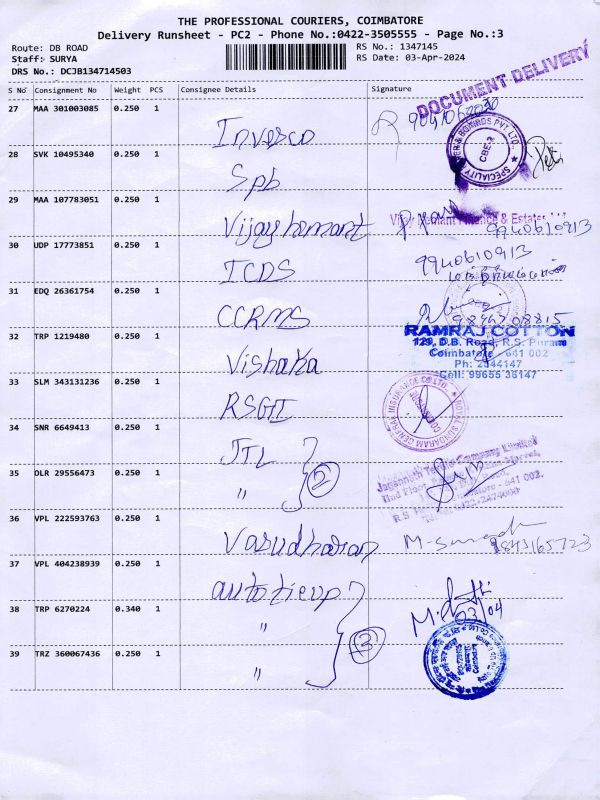 THE PROFESSIONAL COURIERS, COIMBATORE
Delivery Runsheet - PC2 - Phone No.:0422-3505555 - Page No.:3
Route: DB ROAD
Staff: SURYA
DRS No.: DCJB134714503
RS No.: 1347145
RS Date: 03-Apr-2024
DOCUMENT DELIVERY
S No Consignment No Weight PCS Consignee Details Signature
27 MAA 301003085 0.250 1 Invesco
28 SVK 10495340 0.250 1 Spb
CBE-2
SPECIALITY
29 MAA 107783051 0.250 1 Vijay hemant
Vijay Hemant Finance & Estates Ltd
9940610913
30 UDP 17773851 0.250 1 ICDS 9940610913
31 EDQ 26361754 0.250 1 CCRMS
32 TRP 1219480 0.250 1 Vishaka
RAMRAJ COTTON
129, D.B. Road, R.S. Puram
Coimbatore - 641 002
Ph: 2544147
Cell: 99655 35147
33 SLM 343131236 0.250 1 RSGI
ROYAL SUNDARAM GENERAL INSURANCE CO LTD.
34 SNR 6649413 0.250 1 JTL
Jagannath Textile Company Limited
35 DLR 29556473 0.250 1 " 2
36 VPL 222593763 0.250 1 Vasudharan
9843165723
37 VPL 404238939 0.250 1 autotieup
38 TRP 6270224 0.340 1 "
03/04
39 TRZ 360067436 0.250 1 " 3